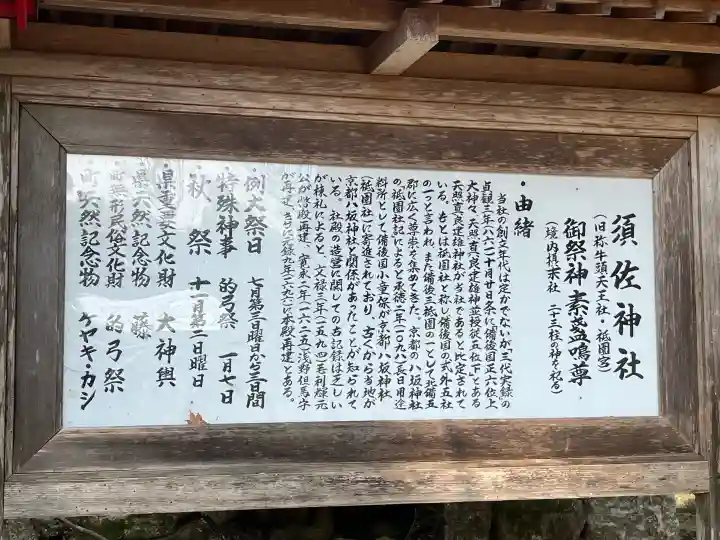 須佐神社
(旧称牛頭天王社・祗園宮)
御祭神 素盞鳴尊
(境内摂末社 二十三柱の神を祀る)
・由緒
当社の創立年代は定かでないが三代実録の
貞観三年(八六一)十月廿日条に備後国正六位上
大神々、天照真良建雄神並授従五位下とある
天照真良建雄神社が当社であると比定されて
いる。もとは祗園社と称し備後国の式外五社
の一つと言われ、また備後三祗園の一として北備五
郡に広く尊崇を集めてきた。京都の八坂神社
の「祗園社記」によると承徳二年(一〇九八)長日用途
料所として備後国小童保が京都八坂神社
(祗園社)に寄進されており、古くから当地が
京都八坂神社と関係があったことが知られて
いる。社殿の造営に関しての古記録は乏しい
が棟札によると、文禄三年(一五九四)毛利輝元
公が啓殿再建、寛永二年(一六二五)浅野但馬守
が再建、さらに元禄九年(一六九六)に本殿再建とある。
・例大祭日 七月第三日曜日から三日間
特殊神事 的弓祭 一月七日
・秋祭 十一月第二日曜日
・県重要文化財 大神輿
・県天然記念物 藤
・町無形民俗文化財 的弓祭
・町天然記念物 ケヤキ・カシ